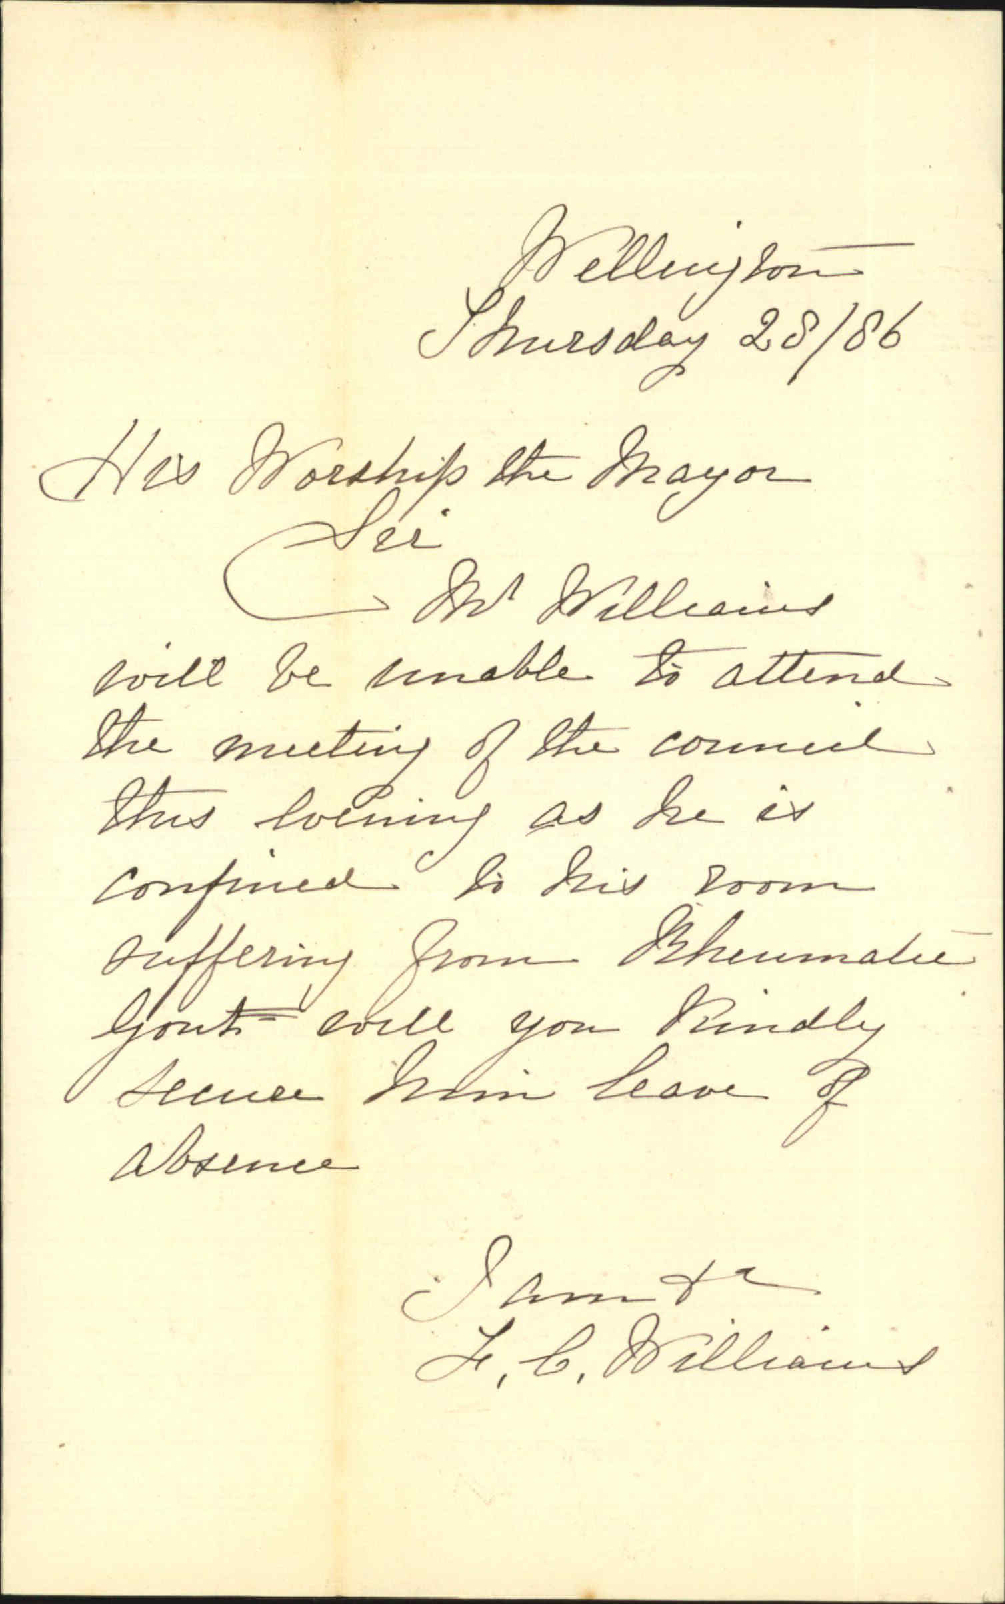 Wellington
Thursday 28/86
His Worship the Mayor
Sir
Mr Williams
will be unable to attend
the meeting of the council
this Evening as he is
confined to his room
suffering from Rheumatic
Gout will you Kindly
secure him leave of
absence
I am &c
F. C. Williams